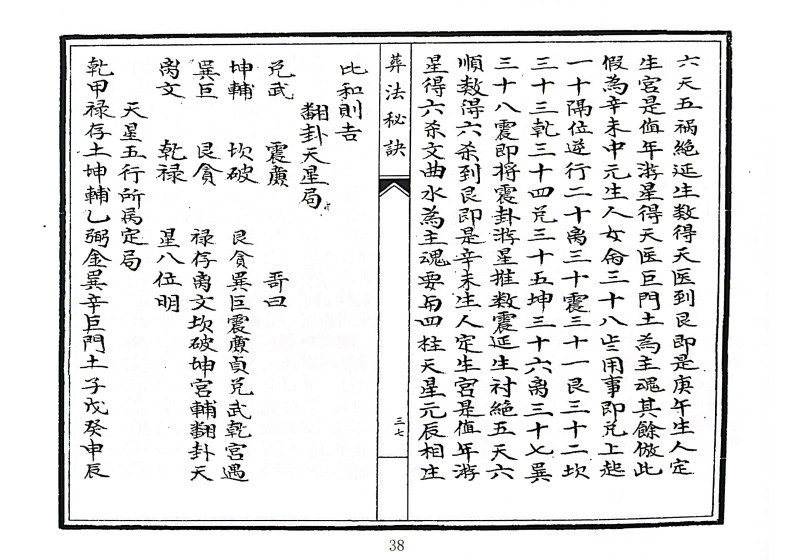 六天五祸絶延生数得天医到艮即是庚午生人定
生宫是值年游星得天医巨門土為主魂其餘倣此
假為辛未中元生人女命三十八岁用事即兑上起
一十隔位逆行二十离三十震三十一艮三十二坎
三十三乾三十四兑三十五坤三十六离三十七巽
三十八震即將震卦游星推数震延生祸絶五天六
順数得六杀到艮即是辛未生人定生宫是值年游
星得六杀文曲水為主魂要与四柱天星元辰相生
葬法秘訣
三七
比和則吉
翻卦天星局
兑武 震廉 哥曰
坤輔 坎破 艮貪巽巨震廉貞兑武乾宫遇
巽巨 艮貪 禄存离文坎破坤宫輔翻卦天
离文 乾禄 星八位明
天星五行所属定局
乾甲禄存土坤輔乙弼金巽辛巨門土子戊癸申辰
38